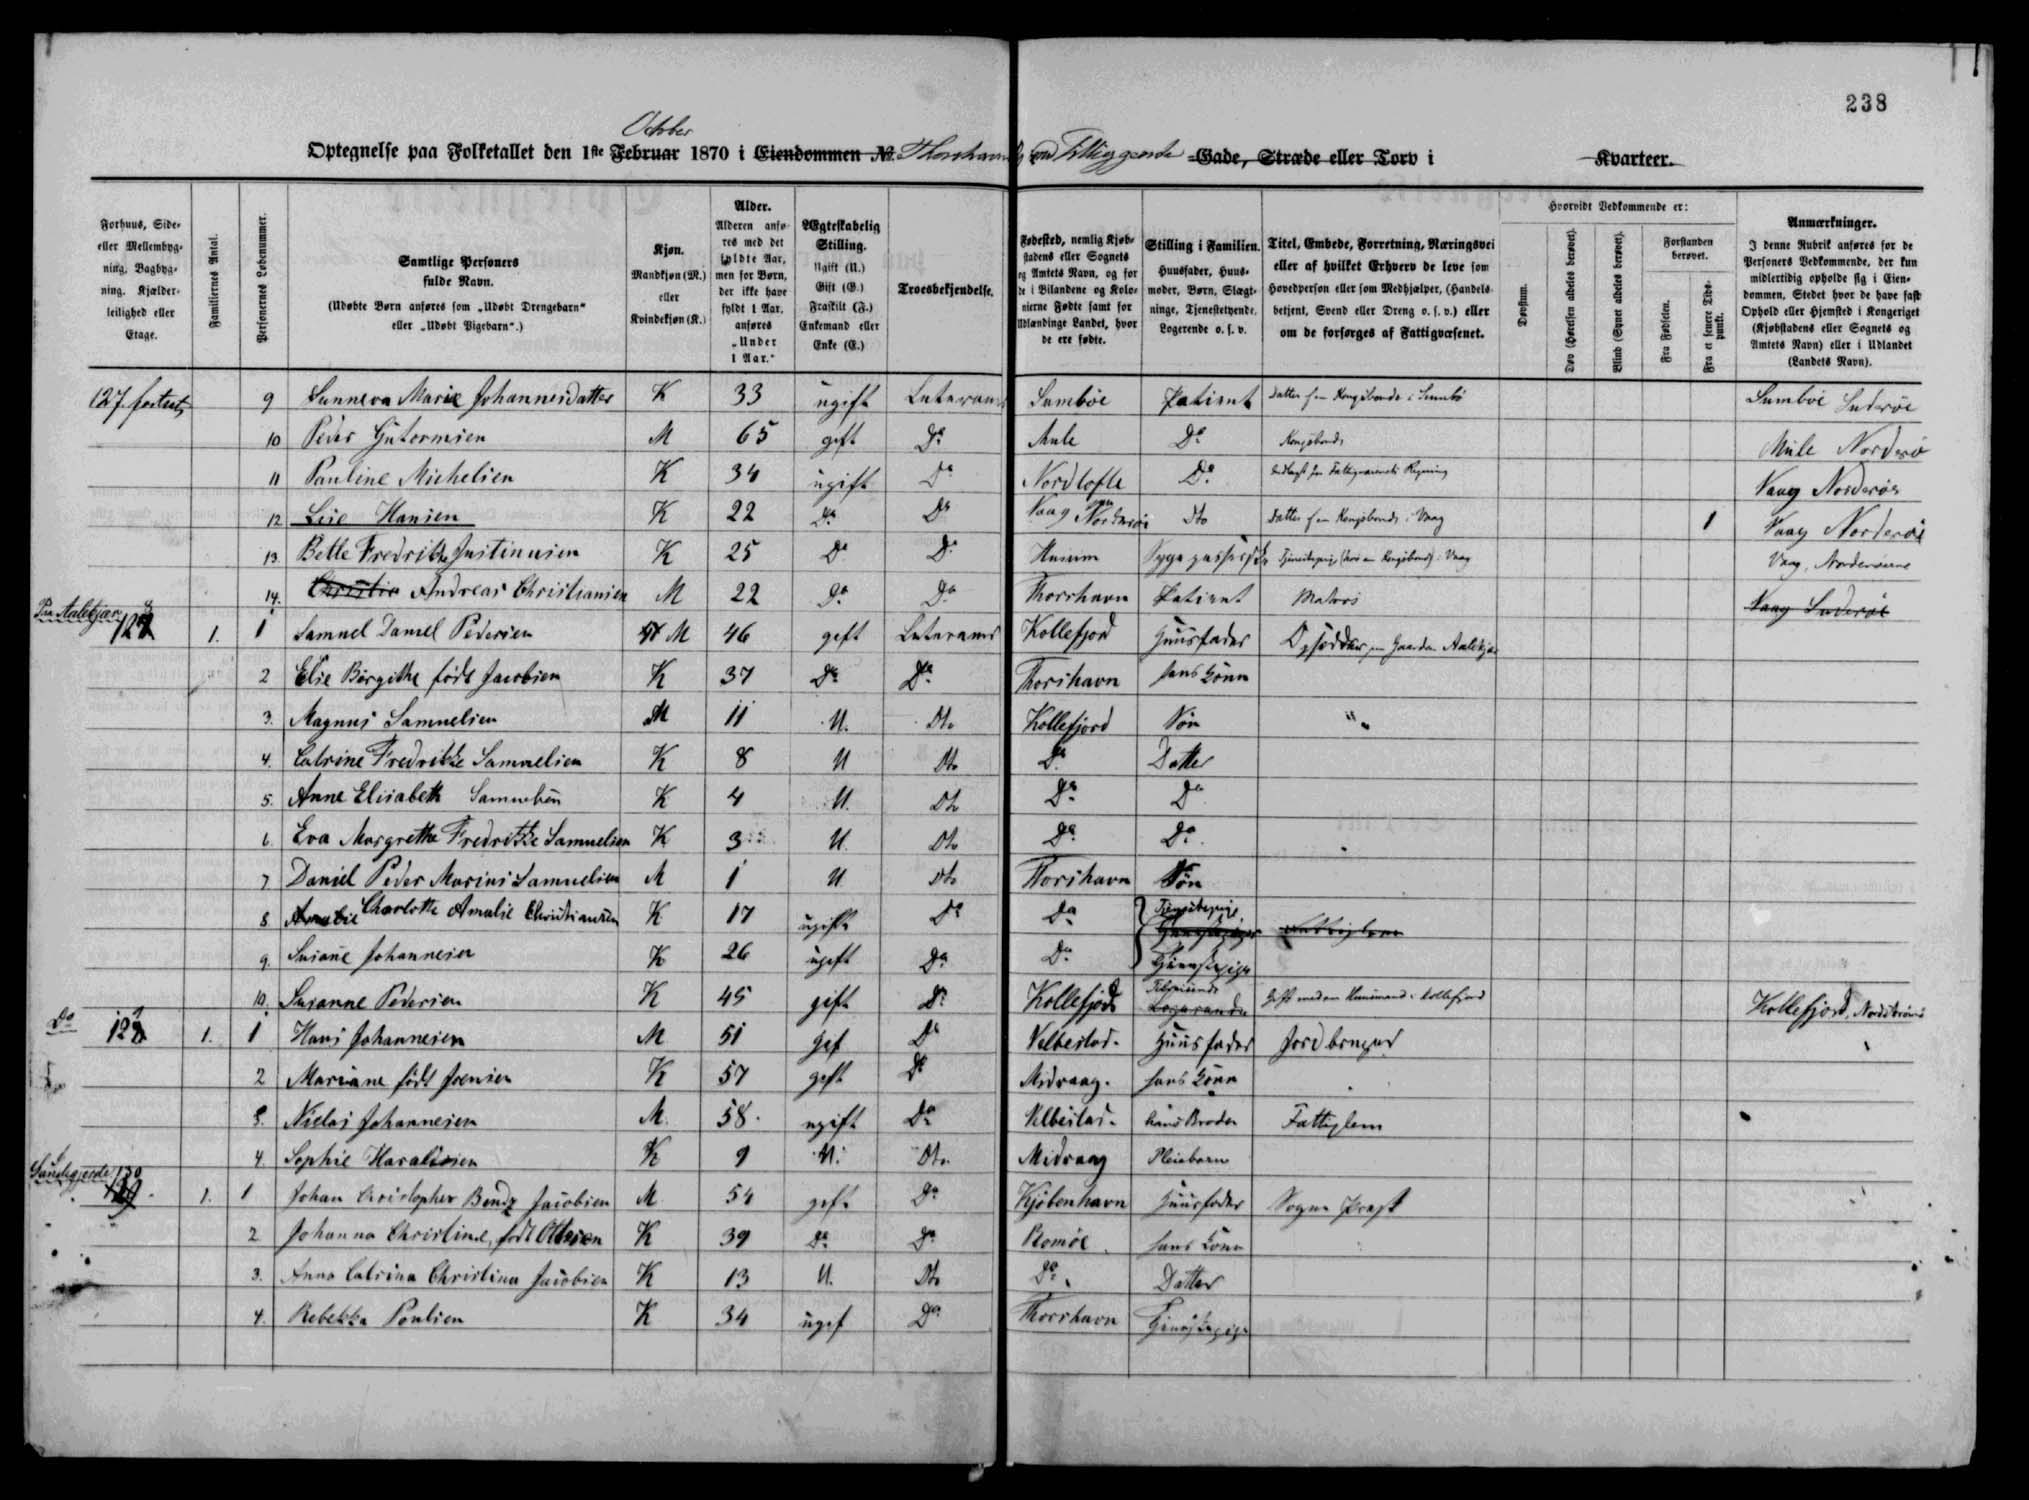 238
October
Optegnelse paa Folketallet den 1ste Februar 1870 i Eiendommen No. Thorshavn Gade, Stræde eller Torv i Kvarteer.
Forhuus, Side- eller Mellembyg- ning, Bagbyg- ning. Kjælder- leilighed eller Etage.
Familiernes Antal.
Personernes Løbenummer.
Samtlige Personers fulde Navn. (Udøbte Børn anføres som „Udøbt Drengebarn“ eller „Udøbt Pigebarn“.)
Kjøn. Mandkjøn (M.) eller Kvindekjøn (K.)
Alder. Alderen anfø- res med det fyldte Aar, men for Børn, der ikke have fyldt 1 Aar, anføres „Under 1 Aar.“
Ægteskabelig Stilling. Ugift (U.) Gift (G.) Fraskilt (F.) Enkemand eller Enke (E.)
Troesbekjendelse.
Fødested, nemlig Kjøb- stadens eller Sognets og Amtets Navn, og for de i Bilandene og Kolo- nierne Fødte samt for Udlændinge Landet, hvor de ere fødte.
Stilling i Familien. Huusfader, Huus- moder, Børn, Slægt- ninge, Tjenestetyende, Logerende o. s. v.
Titel, Embede, Forretning, Næringsvei eller af hvilket Erhverv de leve som Hovedperson eller som Medhjælper, (Handels- betjent, Svend eller Dreng o. s. v.) eller om de forsørges af Fattigvæsenet.
Hvorvidt Vedkommende er:
Døvstum.
Døv (Hørelsen aldeles berøvet).
Blind (Synet aldeles berøvet).
Forstanden berøvet.
Fra Fødselen.
Fra et senere Tids- punkt.
Anmærkninger. I denne Rubrik anføres for de Personers Vedkommende, der kun midlertidig opholde sig i Eien- dommen, Stedet hvor de have fast Ophold eller Hjemsted i Kongeriget (Kjøbstadens eller Sognets og Amtets Navn) eller i Udlandet (Landets Navn).
127. fortsat, 9 Sunneva Marie Johannesdatter K 33 ugift Luterans Sumbøe Patient Datter f en Kongsbonde i Sumbø Sumbøe Suderøe
10 Peder Gutormsen M 65 gift Do Mule Do Kongsbonde Mule Norderø
11 Pauline Michelsen K 34 ugift Do Nordtofte Do Vaag Norderøe
12 Lise Hansen K 22 Do Do Vaag Norderøe Dto Datter f en Kongsbonde i Vaag 1 Vaag Norderøe
13. Bette Fredrikke Justinusen K 25 Do Do Husum Vaag, Norderøerne
14. Christia Andreas Christiansen M 22 Do Do Thorshavn Patient Matros Vaag Suderøe
Paa Aalekjær 128 1. 1 Samuel Daniel Pedersen M 46 gift Luterans Kollefjord Huusfader Opsidder paa Gaarden Aalekjær
2 Elie Birgithe født Jacobsen K 37 Do Do Thorshavn hans Kone
3. Magnus Samuelsen M 11 U. Dto Kollefjord Søn "
4. Catrine Fredrikke Samuelsen K 8 U Dto Do Datter
5. Anne Elisabeth Samuelsen K 4 U. Dto Do Do
6. Eva Margrethe Fredrikke Samuelsen K 3 U. Dto Do Do
7 Daniel Peder Marius Samuelsen M 1 U Dto Thorshavn Søn
8. Amalie Charlotte Amalie Christiansen K 17 ugift Do Do Tjenestepige
9. Susane Johannesen K 26 ugift Do Do Tjenestepige
10. Susanne Pedersen K 45 gift Do Kollefjord Logerende Gift med en Huusmand i Kollefjord Kollefjord, Nordstrømø
Do 129 1. 1 Hans Johannesen M 51 gift Do Velbestad Huusfader Jordbruger
2 Mariane født Joensen K 57 gift Do Midvaag. hans Kone
3. Niclas Johannesen M. 58. ugift Do Velbestad hans Broder Fattiglem
4. Sophie Haraldsen K 9 U. Dto Midvaag Pleiebarn
Sandegjerde 130 1. 1 Johan Christopher Bendz Jacobsen M 54 gift Do Kjøbenhavn Huusfader Sogne Præst
2 Johanna Christine, født Ottesen K 39 Do Do Romøe hans Kone
3. Anna Catrina Christina Jacobsen K 13 U. Dto Do Datter
4. Rebekka Poulsen K 34 ugif Do Thorshavn Tjenestepige